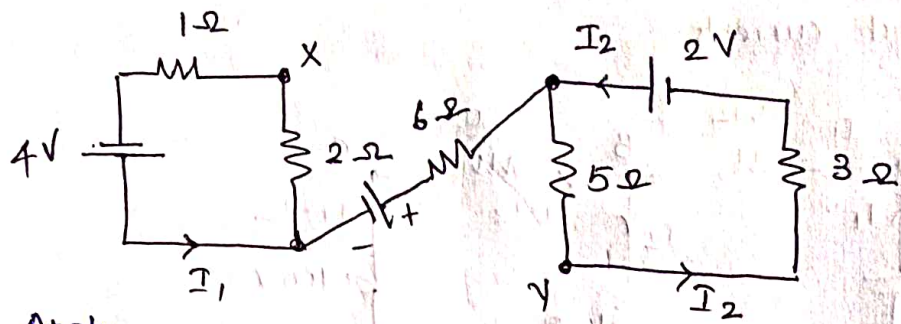 1Ω
X
I2
2V
4V
2Ω
6Ω
5Ω
3Ω
+
−
I1
Y
I2